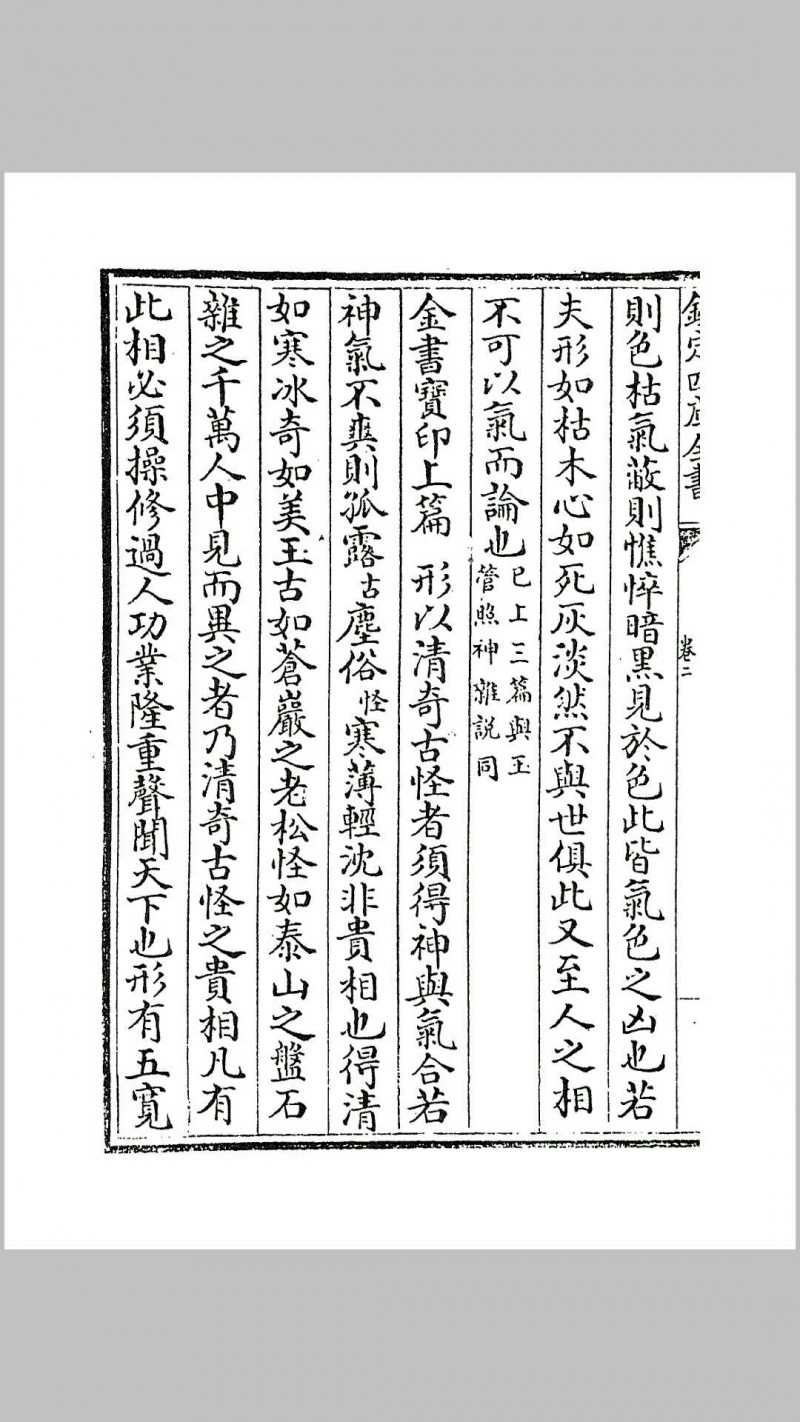 欽定四庫全書
卷二
則色枯氣蔽則憔悴暗黒見於色此皆氣色之凶也若
夫形如枯木心如死灰淡然不與世俱此又至人之相
不可以氣而論也已上三篇與玉管照神雜説同
金書寳印上篇 形以清奇古怪者須得神與氣合若
神氣不爽則孤露古塵俗怪寒薄輕沈非貴相也得清
如寒冰奇如美玉古如蒼巖之老松怪如泰山之盤石
雜之千萬人中見而異之者乃清奇古怪之貴相凡有
此相必須操修過人功業隆重聲聞天下也形有五寛